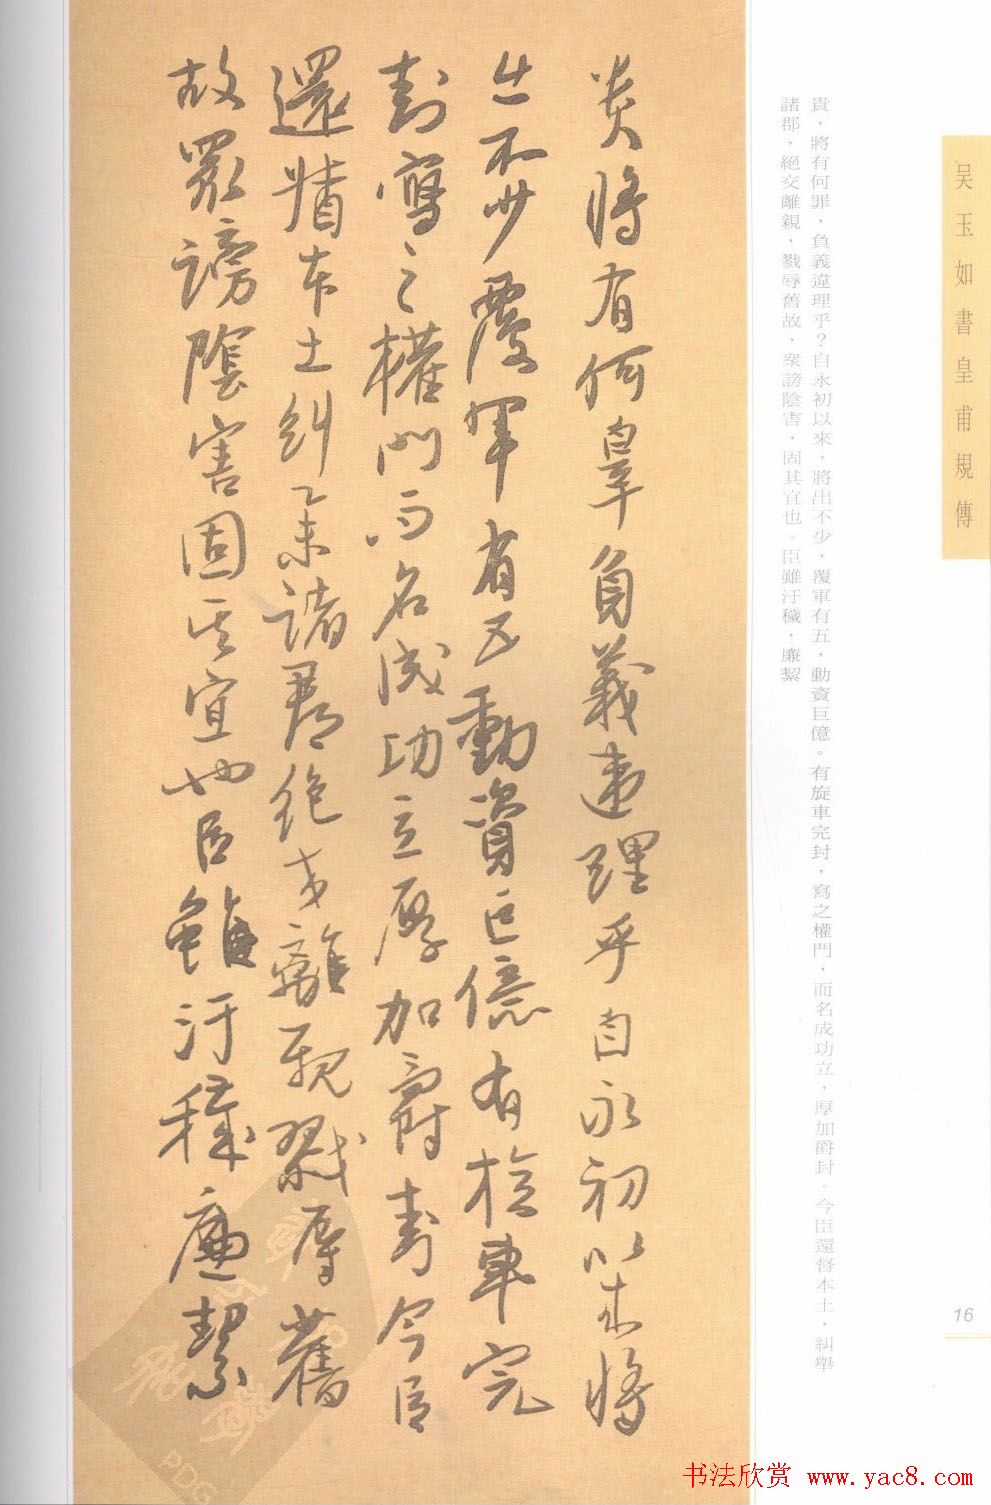 吴玉如書皇甫規傳
責，將有何罪，負義違理乎？自永初以來，將出不少，覆軍有五，動資巨億。有旋車完封，寫之權門，而名成功立，厚加爵封。今臣還督本土，糾舉
諸郡，絕交離親，戮辱舊故，衆謗陰害，固其宜也。臣雖汙穢，廉絜
責將有何辠負義違理乎自永初以來將
出不少覆軍有五動資巨億有旋車完
封寫之權門而名成功立厚加爵封今臣
還督本土糾舉諸郡絕交離親戮辱舊
故衆謗陰害固其宜也臣雖汙穢廉絜
16
PDG
书法欣赏 www.yac8.com